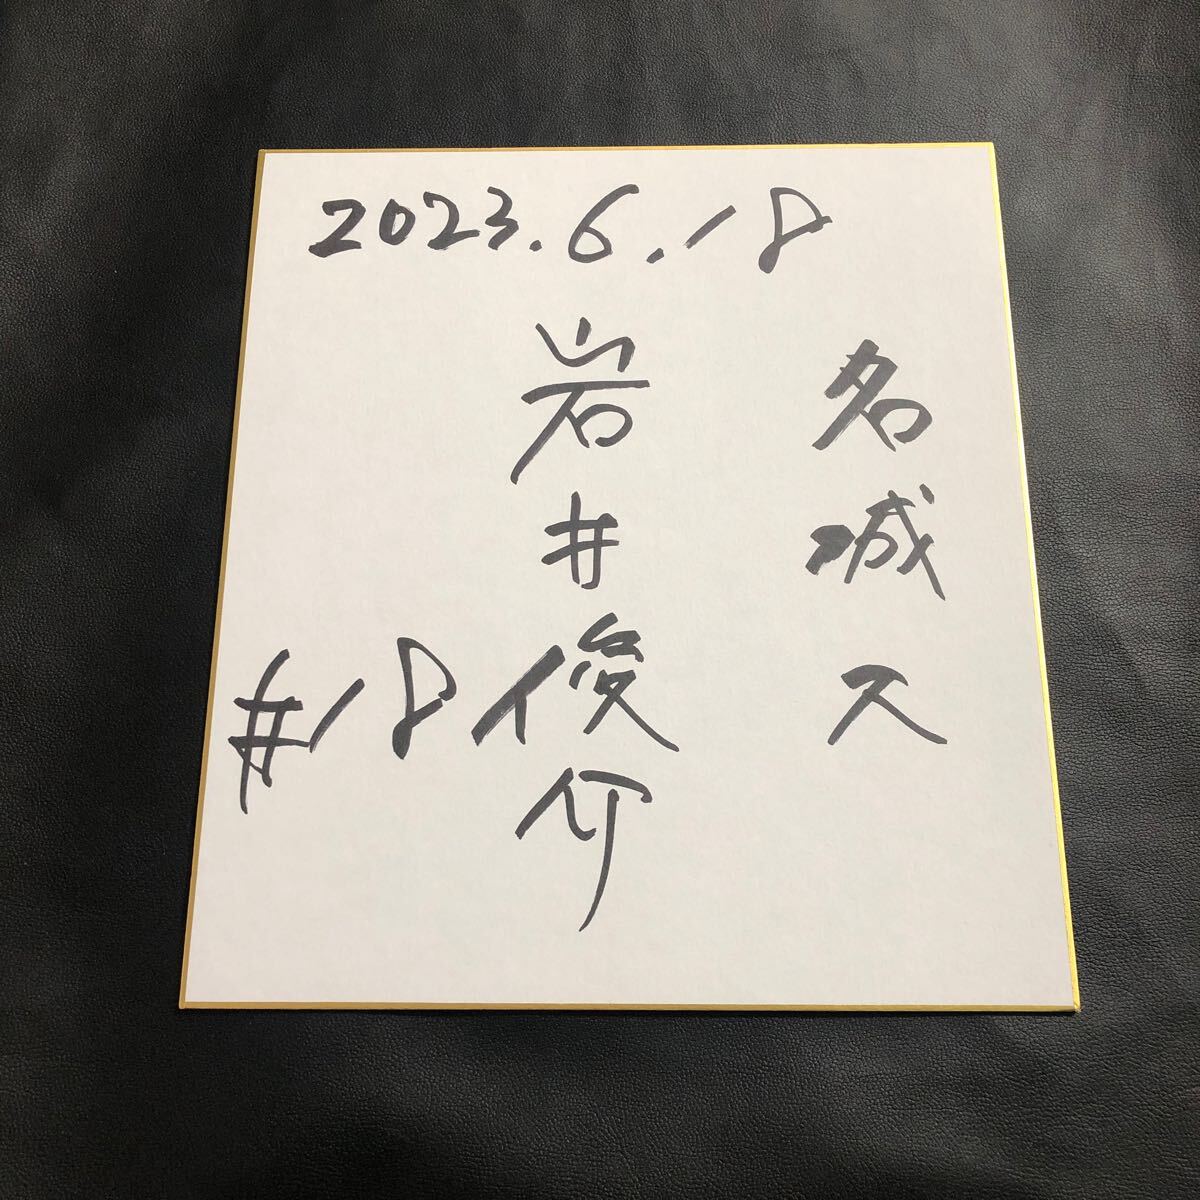 2023.6.18
名城大
岩井俊介
#18